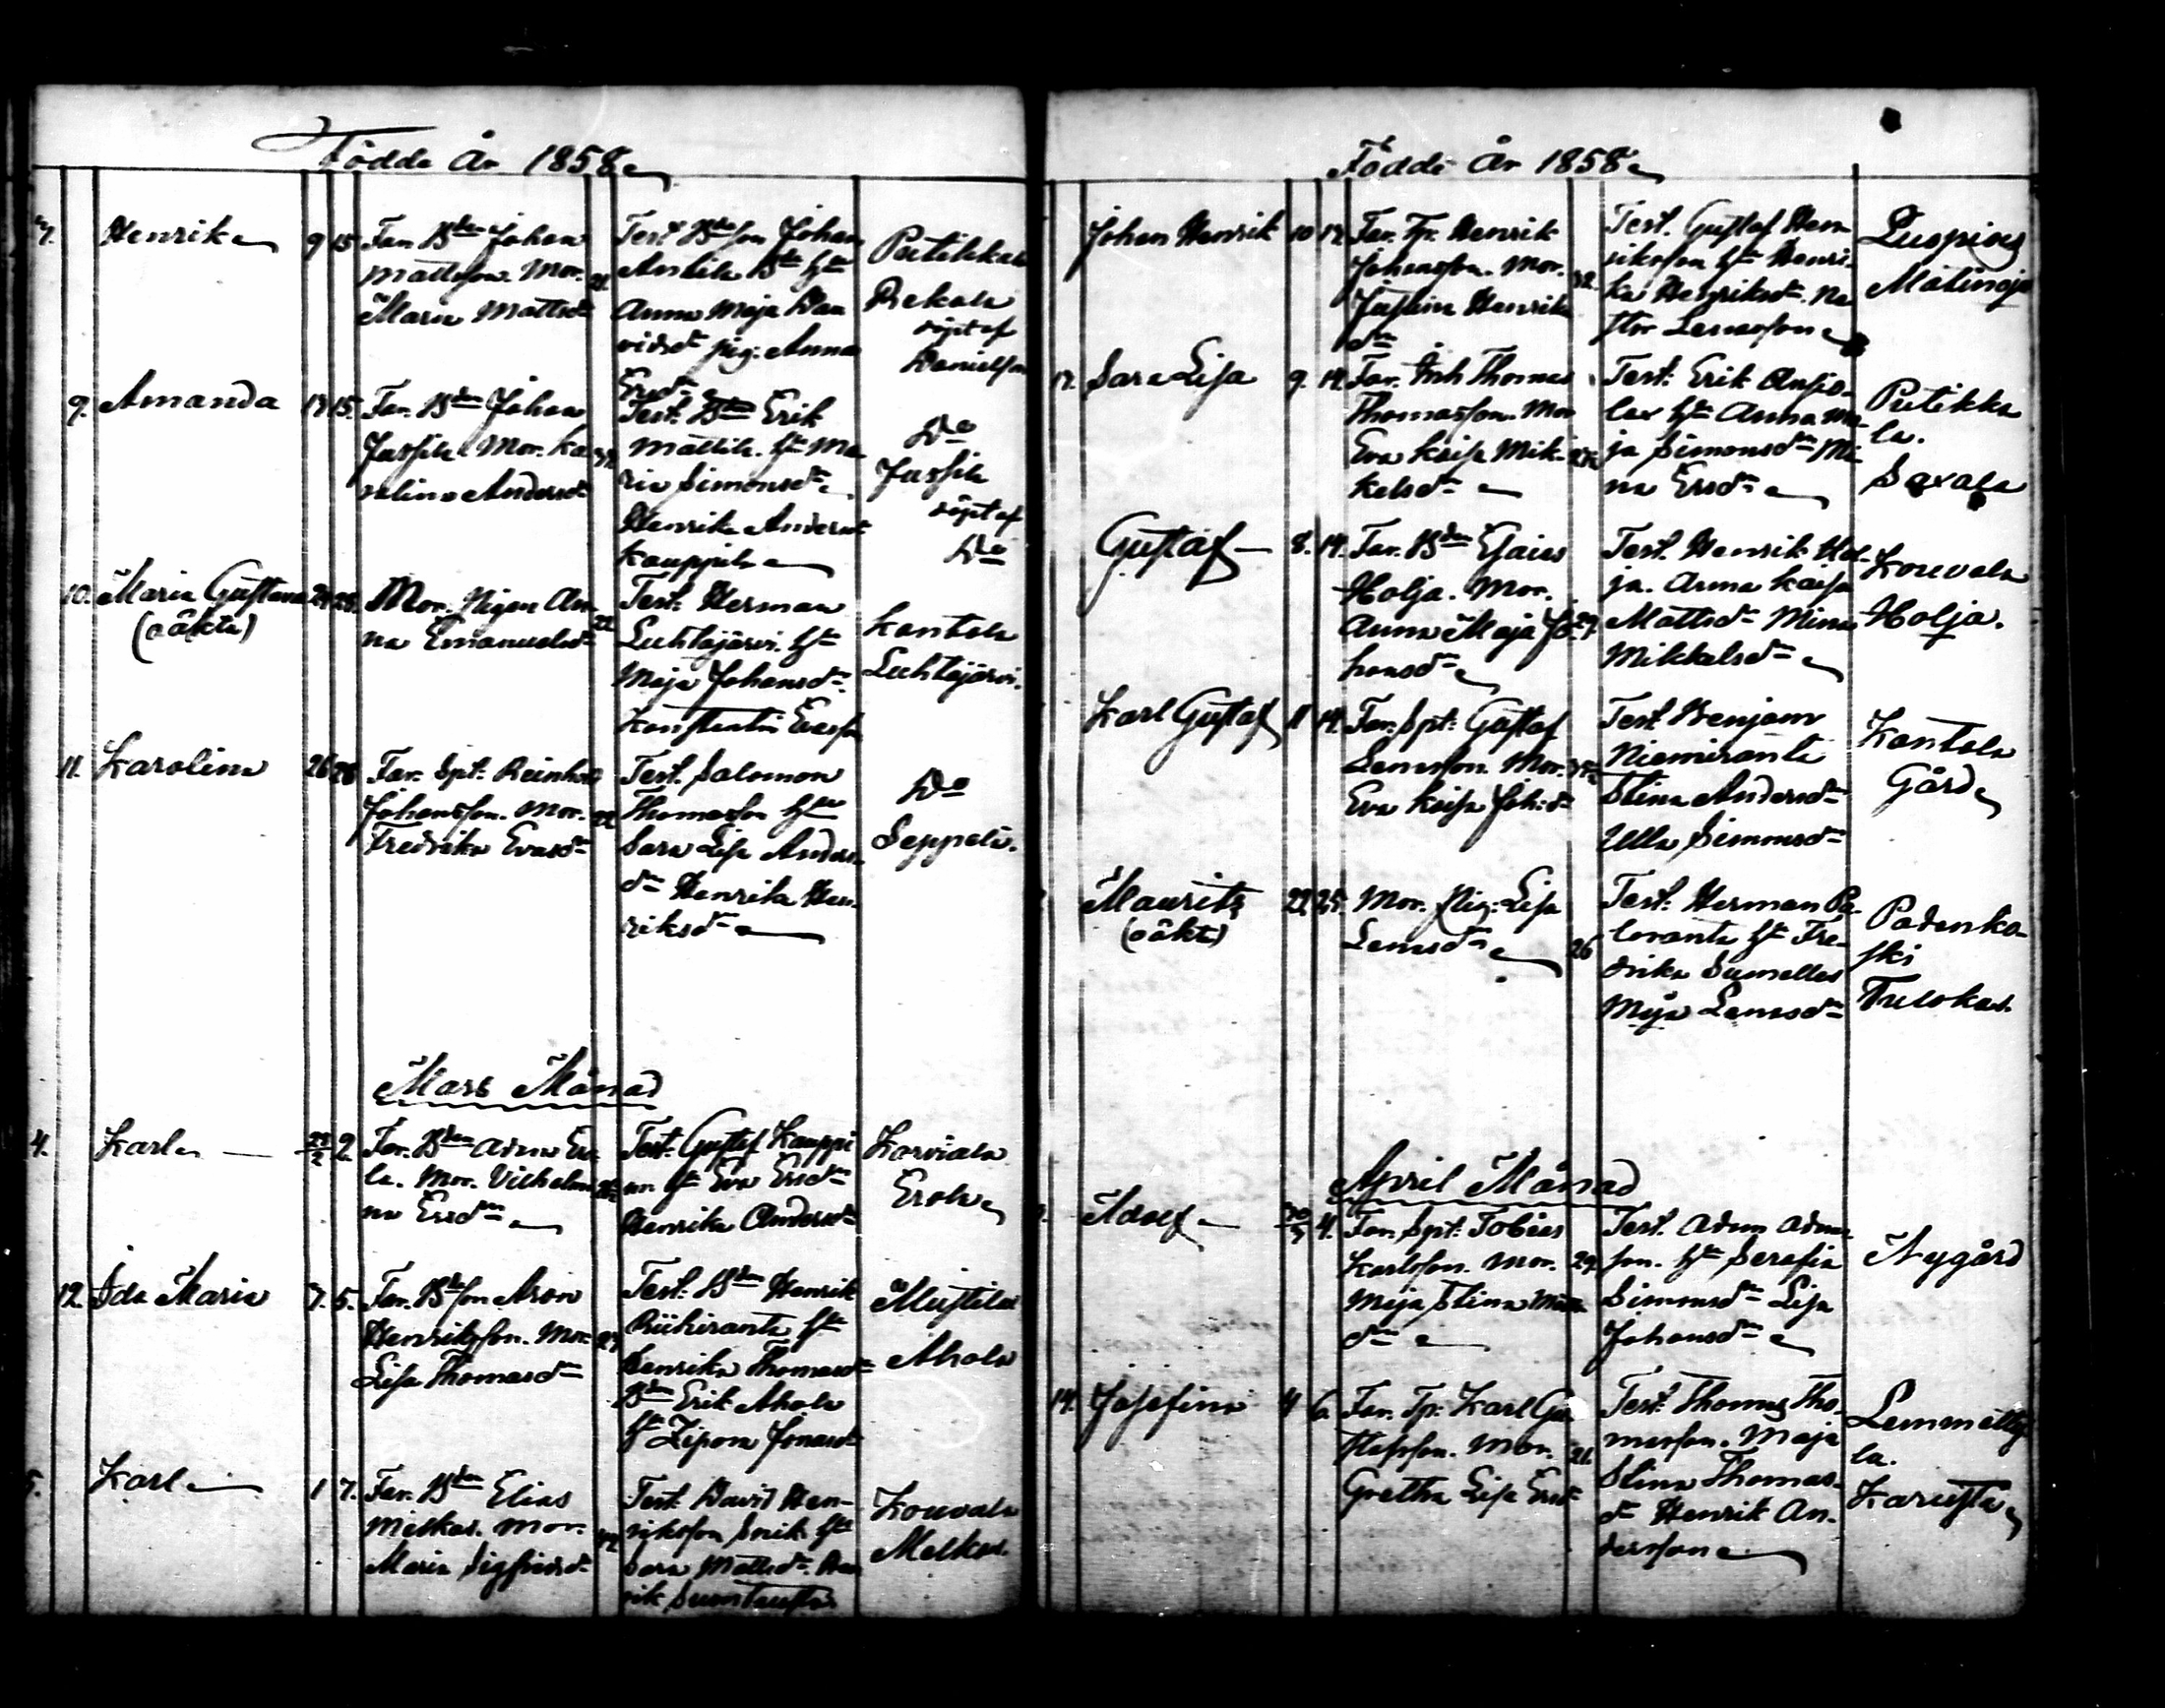 Födde år 1858
7. Henrika 9 15 Far. Bden Johan
Mattsson. Mor.
Maria Mattsdr
21.
Test Bdeson Johan
Anttila Bde hu
Anna Maja Da
vidsdr pig. Anna
Ersdr
Putikkala
Pekola
döpt af
Danielson
9. Amanda 13 15. Far. Bden Johan
Jussila Mor. Ka
rolina Andersdr
Test. Bden Erik
Mattila. hu Ma
ria Simonsdr
Henrika Andersdr
Kauppila
Do
Jussila
döpt af
Do
10. Maria Gustava 28.
(oäkta)
Mor. Pigan An
na Emanuelsdr
22
Test. Herman
Luhtajärvi. hu
Maja Johansdr
Konstantin Evasson
Kantola
Luhtajärvi.
11. Karolina 26 28 Far. Spt. Reinhold
Johansson. Mor.
Fredrika Evasdr
22
Test. Salomon
Thomasson hu
Sara Lisa Anders
dr Henrika Hen
riksdr
Do
Seppälä.
Mars Månad
4. Karl 2. Far. Bden Adam Ero
la. Mor. Vilhelmi
na Ersdr
Test. Gustaf Kauppi
hu Eva Ersdr
Henrika Andersdr
Korviala
Erola
12. Ida Maria 3. 5. Far. Bdeson Aron
Henriksson. Mor.
Lisa Thomasdr
Test. Bden Henrik
Riihiranta hu
Henrika Thomasdr
Bden Erik Ahola
hu Zipora Jonasdr
Mustila
Ahola
5. Karl 1 7. Far. Bden Elias
Melkas. Mor.
Maria Sigfridsdr
Test. David Hen-
riksson hu
Sara Mattsdr. Hen
rik
Kouvala
Melkas.
Födde år 1858
Johan Henrik 10 14. Far. Tp. Henrik
Johansson. Mor.
Justina Henriks
dr
32.
Test. Gustaf Hen
riksson hu Henri-
ka Henriksdr. Ne
stor Lenasson
17. Sara Lisa 9. 14. Far. Inh Thomas
Thomasson. Mor
Eva Kaisa Mik-
kelsdr
Test. Erik Anja-
hu Anna Ma-
ja Simonsdr Mi-
na Ersdr
Putikka
la.
Saxala
Gustaf 8. 14. Far. Bden Esaias
Holja. Mor.
Anna Maja Jo-
hansdr
29
Test. Henrik Hol-
ja. Anna Kaisa
Mattsdr Mina
Mikkelsdr
Kouvala
Holja.
Karl Gustaf 11 14. Far. Spt. Gustaf
Lenasson. Mor.
Eva Kaisa Joh:dr
Test. Benjam
Niemiranta
Stina Andersdr
Ulla Simonsdr
Kantola
Gård
Mauritz 22 25.
(oäkta)
Mor. Pig. Lisa
Lenasdr
26
Test. Herman Pa-
loranta hu Fre-
drika
Maja Lenasdr
Padenko-
ski
Tulokas.
April Månad
Adolf 30/3 4. Far. Spt. Tobias
Karlsson. Mor.
Maja Stina
dr
29
Test. Adam Adam
son. hu Serafia
Simonsdr Lisa
Johansdr
Nygård
14. Josefina 4 6. Far. Tp. Karl Gu
stafsson. Mor.
Gretha Lisa Ersdr
21.
Test. Thomas Tho-
masson. Maja
Stina Thomas-
dr Henrik An-
dersson
Lemmetty
la.
Karusta